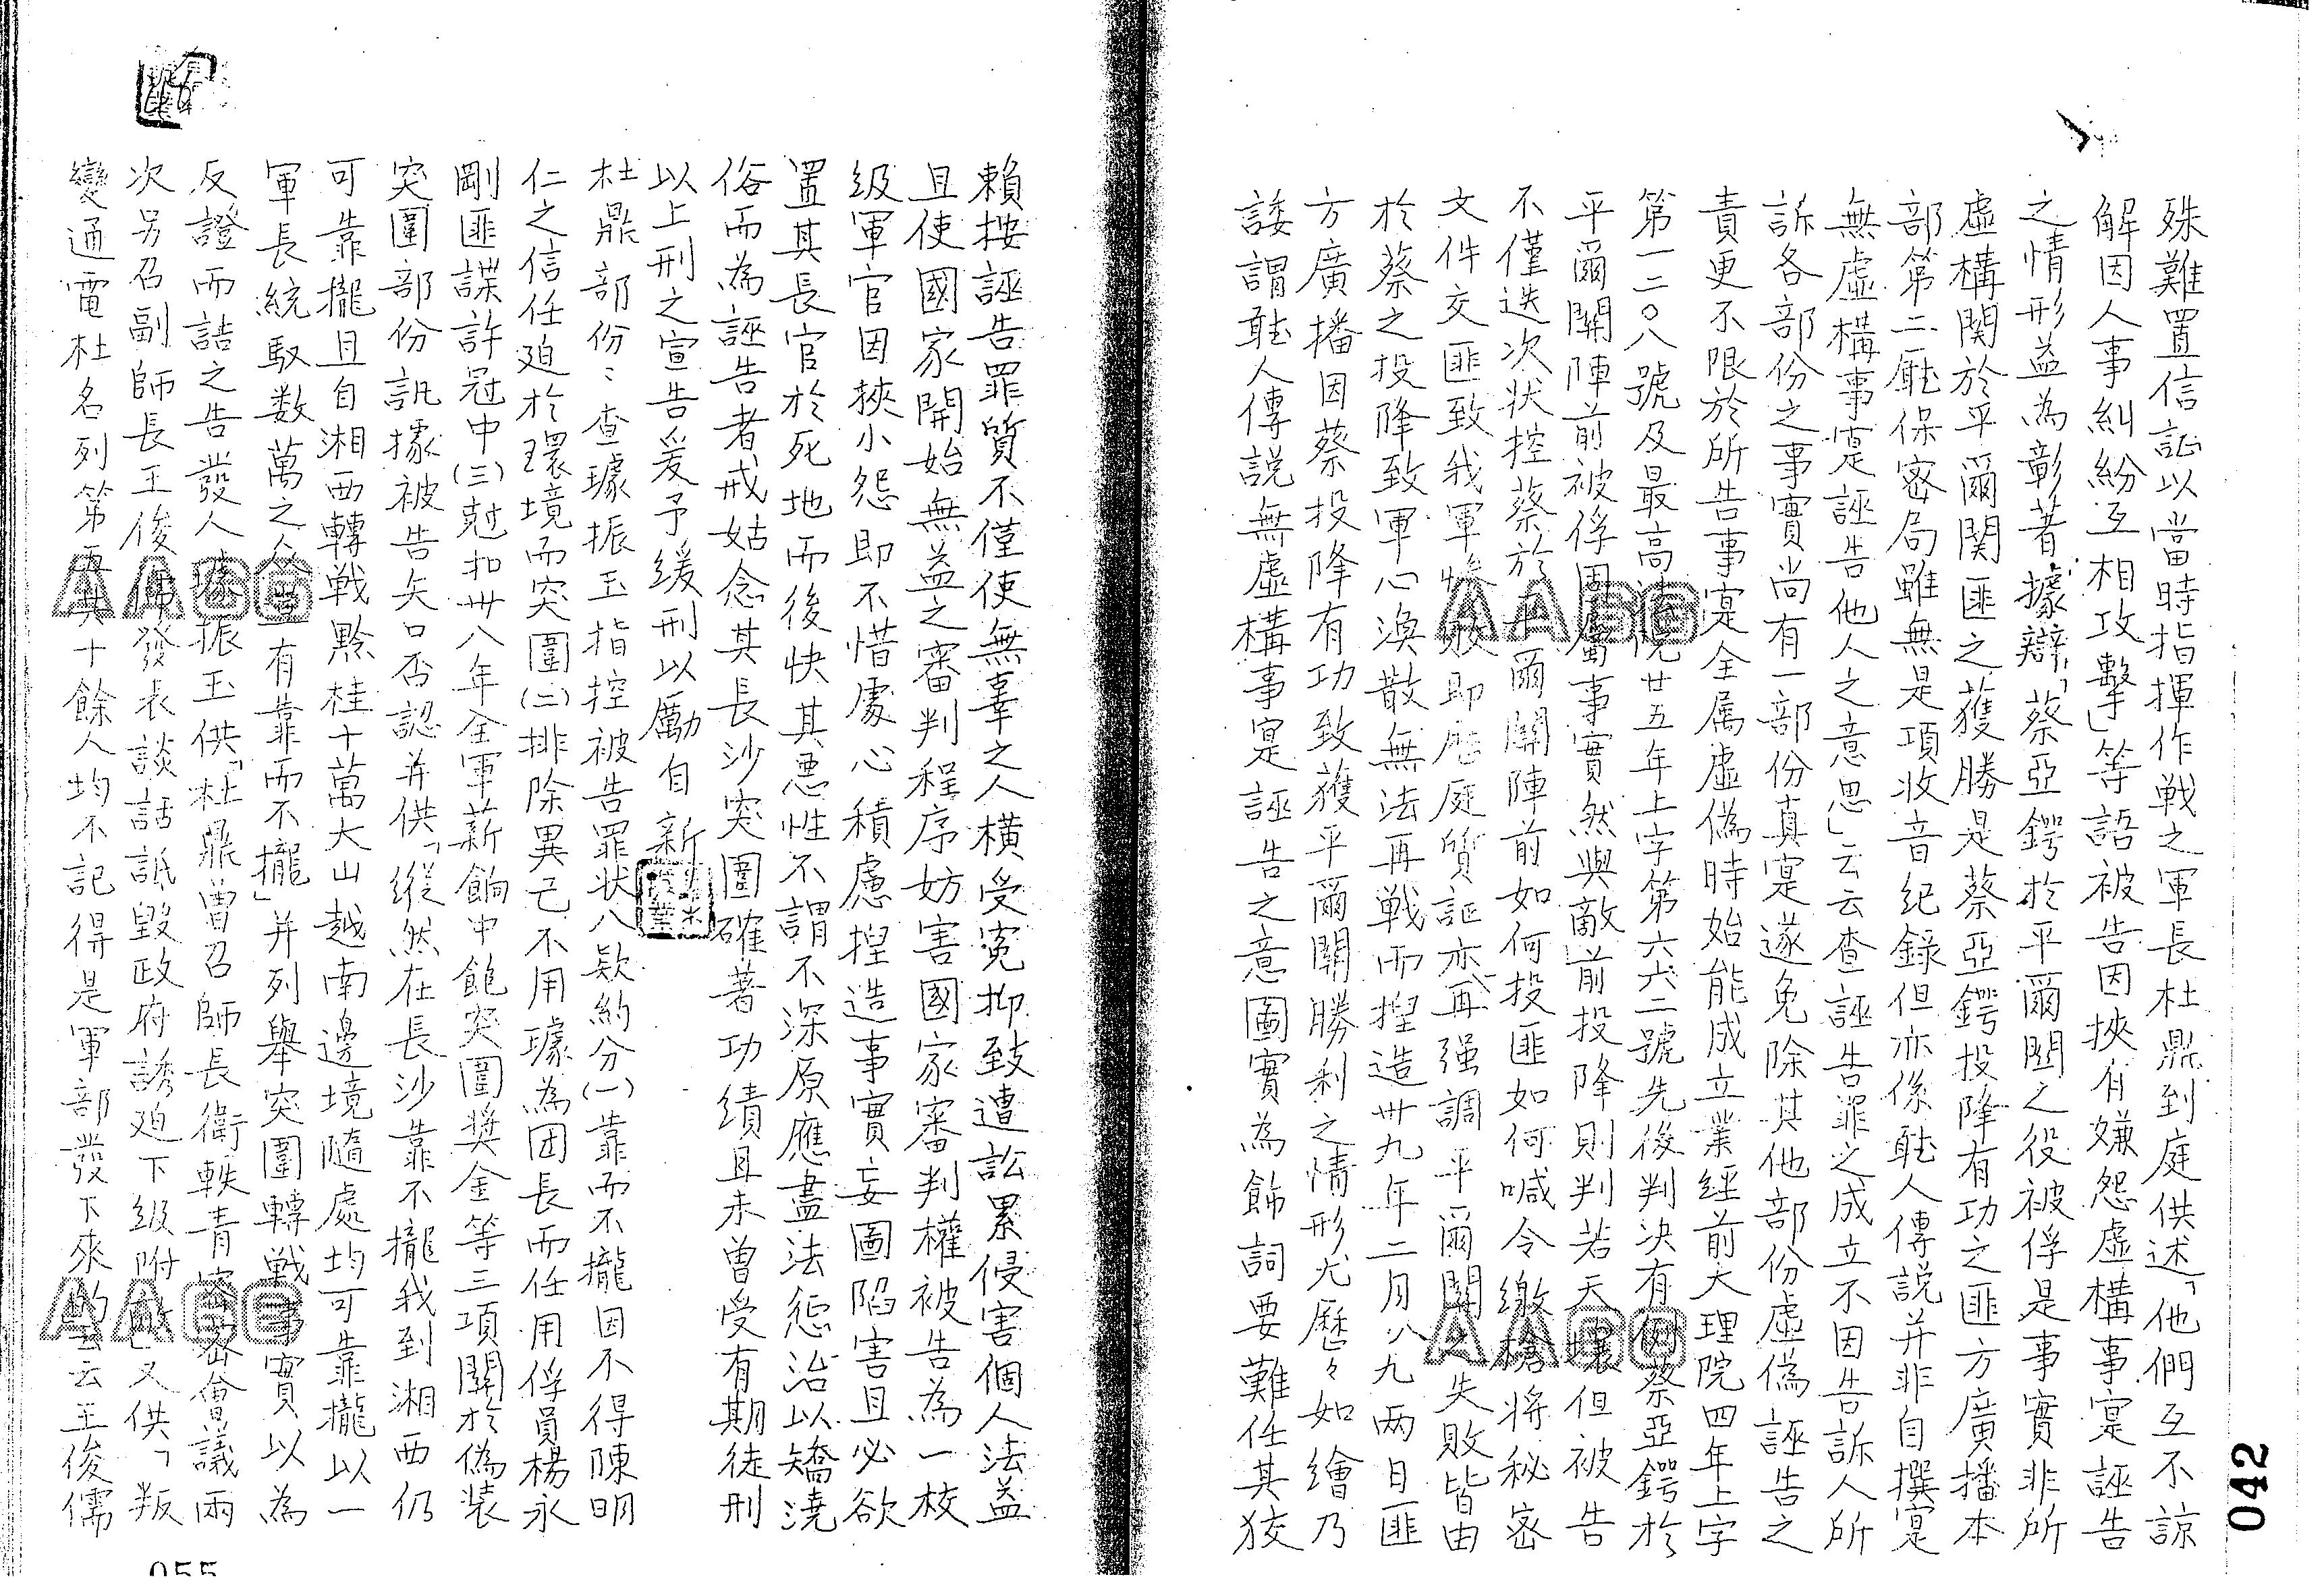 殊難置信証以當時指揮作戰之軍長杜鼎到庭供述「他們互不諒
解因人事糾紛互相攻擊」等語被告因挾有嫌怨虛構事寔誣告
之情形益為彰著據辯「蔡亞鍔於平爾關之役被俘是事實非所
虛構関於平爾関匪之獲勝是蔡亞鍔投降有功之匪方廣播本
部第二廳保密局雖無是項收音紀錄但亦係聽人傳説并非自撰寔
無虛構事寔誣告他人之意思」云云查誣告罪之成立不因告訴人所
訴各部份之事實尚有一部份真寔遂免除其他部份虛偽誣告之
責更不限於所告事寔全属虛偽時始能成立業經前大理院四年上字
第一二〇八號及最高法院廿五年上字第六六二號先後判决有例蔡亞鍔於
平爾關陣前被俘固屬事實然與敵前投降則判若天壤但被告
不僅迭次状控蔡於平爾關陣前如何投匪如何喊令繳槍將秘密
文件交匪致我軍慘敗即應庭質証亦再强調平爾關之失敗皆由
於蔡之投降致軍心渙散無法再戰而捏造卅九年二月八九两日匪
方廣播因蔡投降有功致獲平爾關勝利之情形尤歷々如繪乃
諉謂聽人傳説無虛構事寔誣告之意圖實為飾詞要難任其狡
賴按誣告罪質不僅使無辜之人橫受寃抑致遭訟累侵害個人法益
且使國家開始無益之審判程序妨害國家審判權被告為一校
級軍官因挾小怨即不惜處心積慮捏造事實妄圖陷害且必欲
置其長官於死地而後快其悪性不謂不深原應盡法懲治以矯澆
俗而為誣告者戒姑念其長沙突圍確著功績且未曾受有期徒刑
以上刑之宣告爰予緩刑以勵自新
杜鼎部份：查璩振玉指控被告罪状八欵約分(一)靠而不攏因不得陳明
仁之信任廹於環境而突圍(二)排除異己不用璩為团長而任用俘員楊永
剛匪諜許冠中(三)尅扣卅八年全軍薪餉中飽突圍奬金等三項關於偽装
突圍部份訊據被告矢口否認并供「縱然在長沙靠不攏我到湘西仍
可靠攏且自湘西轉戰黔桂十萬大山越南邊境隨處均可靠攏以一
軍長統馭数萬之众豈有靠而不攏」并列舉突圍轉戰事實以為
反證而詰之告發人璩振玉供「杜鼎曽召師長衛軼青密密會議兩
次另召副師長王俊儒發表談話詆毀政府誘廹下級附逆」又供「叛
變通電杜名列第五共十餘人均不記得是軍部發下來的」云云王俊儒
042
055